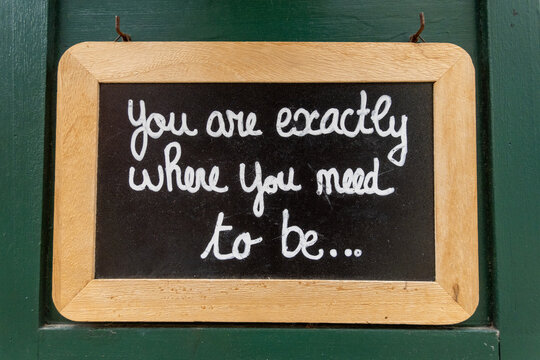 You are exactly
where you need
to be...